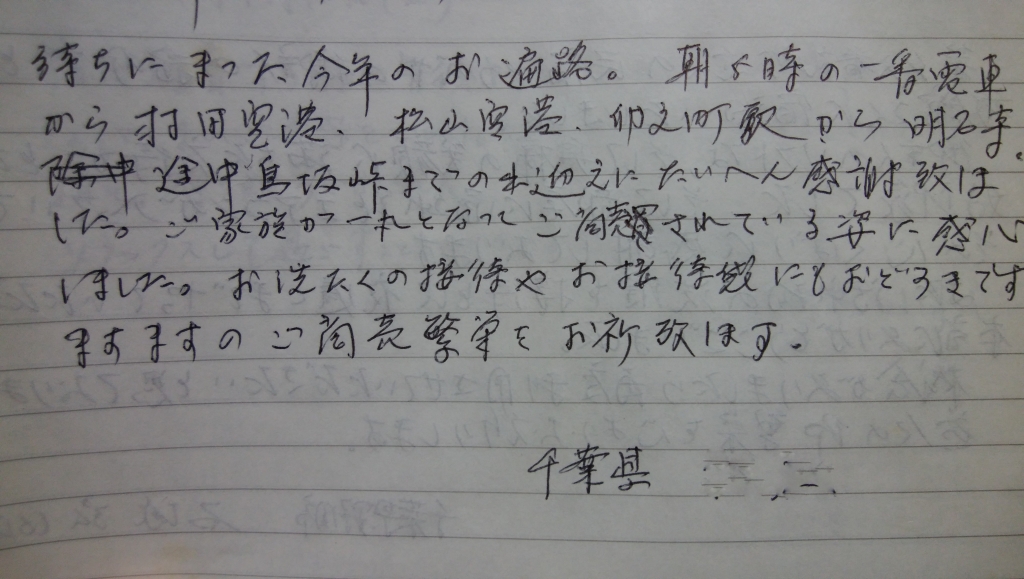 待ちにまった今年のお遍路。朝5時の一番電車
から羽田空港、松山空港、卯之町駅から明石寺。
途中鳥坂峠までのお迎えにたいへん感謝致しま
した。ご家族が一丸となってご商売されている姿に感心
しました。お洗たくの接待やお接待数にもおどろきです
ますますのご商売繁栄をお祈り致します。
千葉県